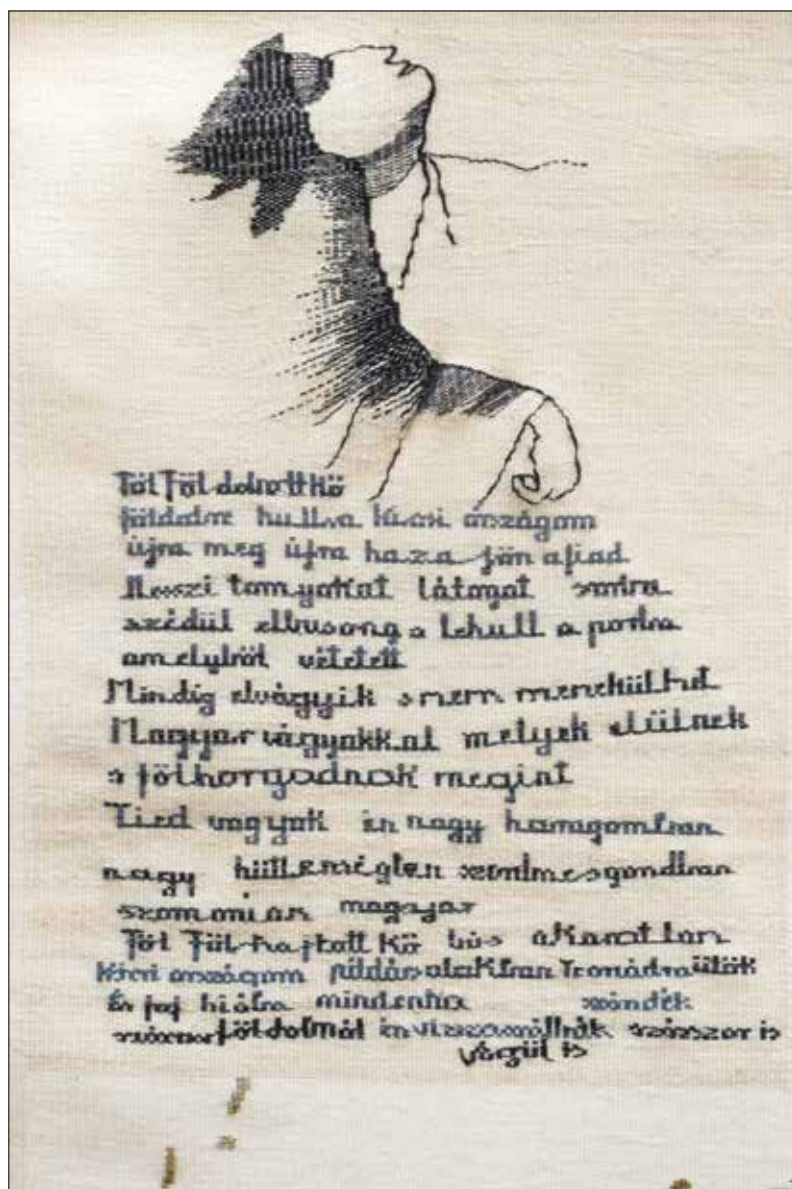 Föl föl dobott kő
földedre hullva kicsi országom
újra meg újra haza jön afiad
Messzi tornyokat látogat sorba
szédül elbusong s lehull a porba
amelyből vétetett
Mindig elvágyik s nem menekülhet
Magyar vágyakkal melyek elülnek
s fölhorgadnak megint
Tied vagyok én nagy haragomban
nagy hűtlenségben szerelmes gondban
szomorúan magyar
Föl föl hajtott kő bús akaratlan
Kicsi országom példás alakban Te orcádra ütök
És jaj hiába mindenha szándék
százszor földobnál én visszaszállnék százszor is
végül is